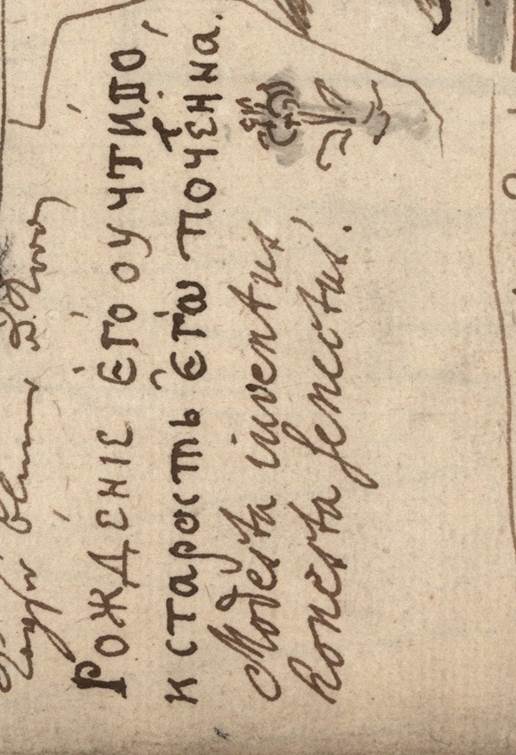 Рождениіе его оу чтиво,
и старость егѡ почтенна.
Modesta iuventus,
honesta senectus.